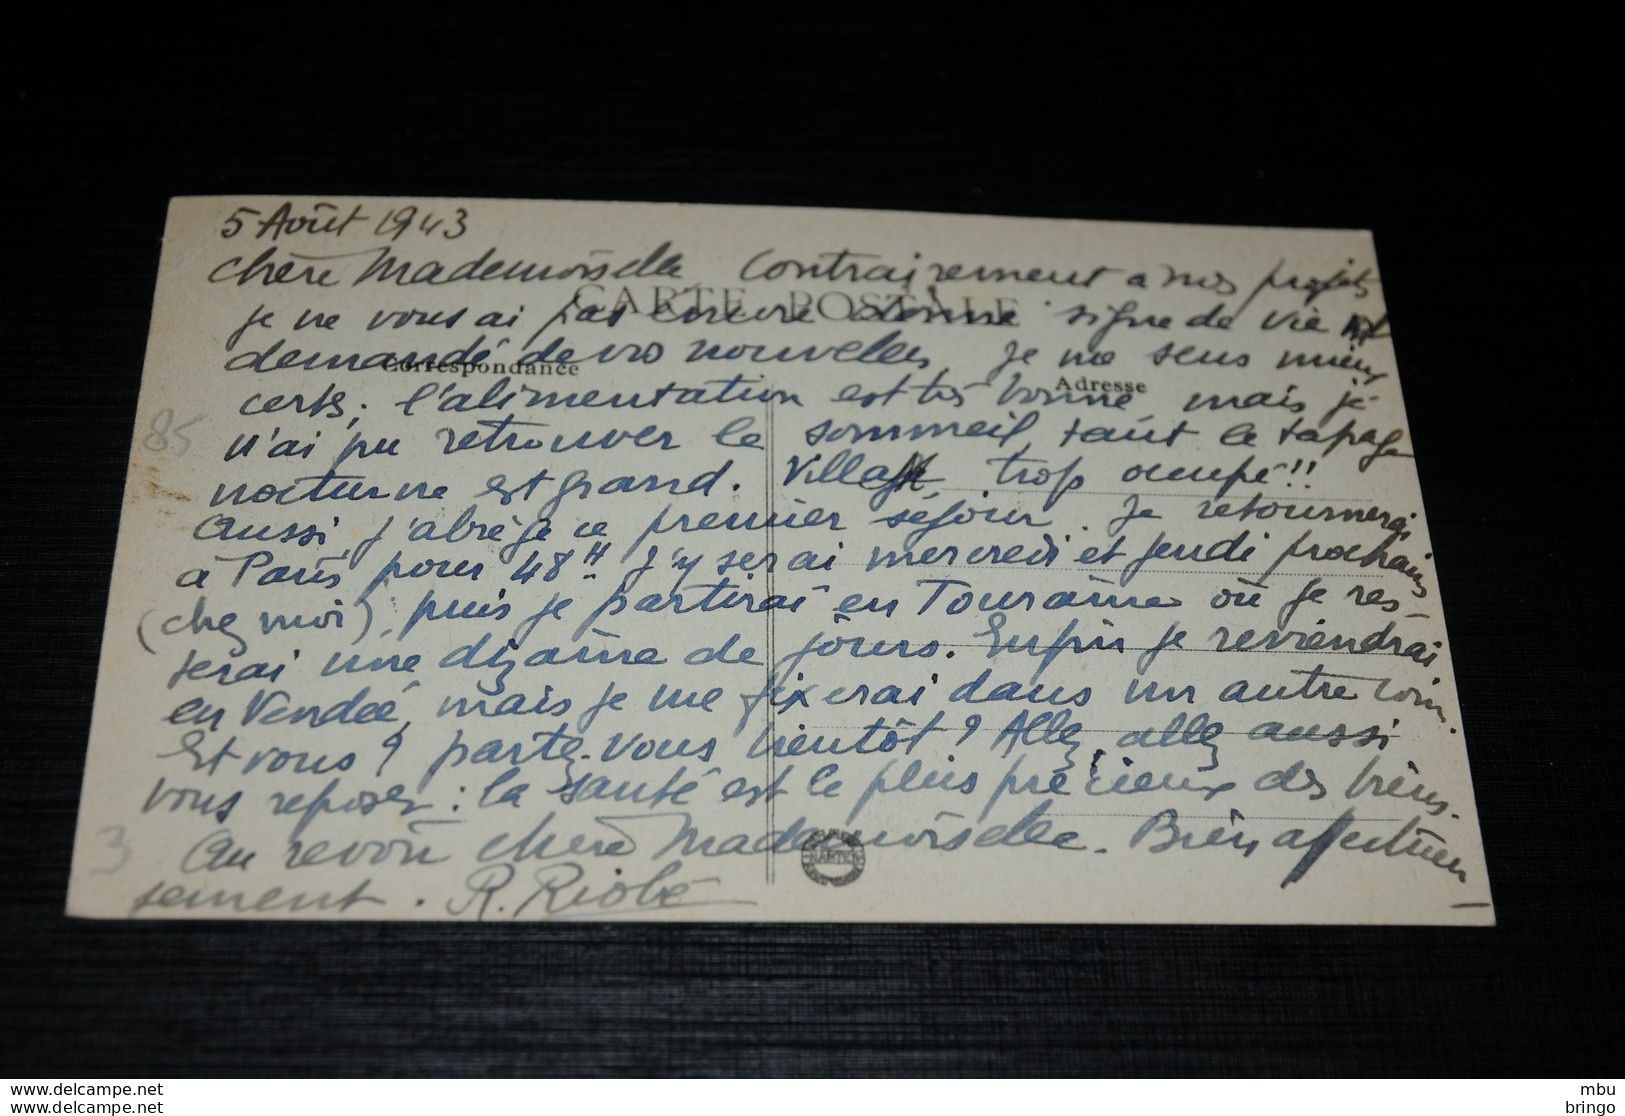 5 Août 1943
Chère Mademoiselle, Contrairement à nos projets
CARTE POSTALE
je ne vous ai pas encore donné signe de vie et
demandé de vos nouvelles, je me sens mieux
Correspondance
Adresse
certes, l'alimentation est très bonne, mais je
n'ai pu retrouver le sommeil, tant le tapage
85
nocturne est grand. Village trop occupé!!
Aussi, j'abrège ce premier séjour. Je retournerai
à Paris pour 48H. J'y serai mercredi et jeudi prochains
(chez moi), puis je partirai en Touraine où je res-
terai une dizaine de jours. Enfin je reviendrai
en Vendée, mais je me fixerai dans un autre coin.
Et vous? partez-vous bientôt? Allez, allez aussi
vous reposer: la santé est le plus précieux des biens.
3
Au revoir chère Mademoiselle. Bien affectueu
sement. R. Riobé
mbu
delcampe.net
bringo
delcampe.net